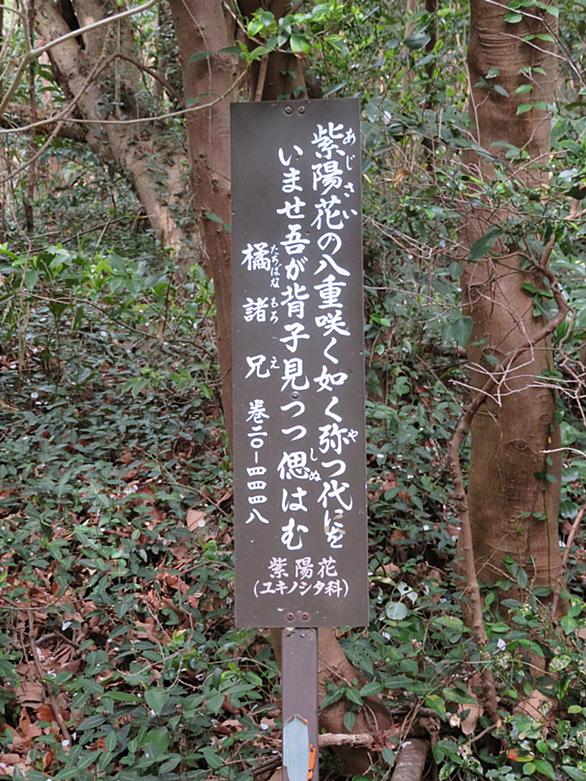 紫陽花の八重咲く如く弥つ代にを
あじさい
や
いませ吾が背子見つつ偲はむ
しぬ
橘諸兄 巻二〇-四四四八
たちばなもろえ
紫陽花
(ユキノシタ科)